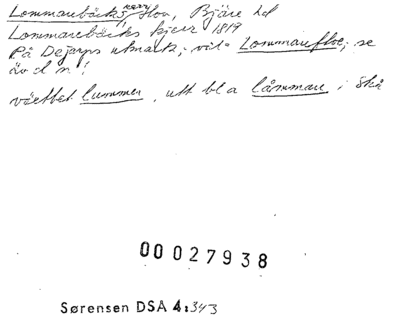 Lommarebäcks kärr, Hov, Bjäre hd
Lommarebäcks kjerr 1819
På Dejarps utmark; vid Lommarefloe; se
äv d n!
växtet lummer, utt bl a låmmar i Skå
00027938
Sørensen DSA 4:343